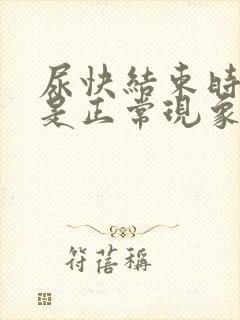 尿快結束時
是正常現象
符蓓稱